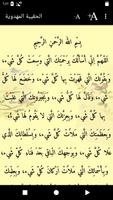 الحقيبة المهدوية A
بِسْمِ اللهِ الرَّحْمنِ الرَّحيمِ
اَللّهُمَّ اِنّي اَسْأَلُكَ بِرَحْمَتِكَ الَّتي وَسِعَتْ كُلَّ شَيْء،
وَبِقُوَّتِكَ الَّتي قَهَرْتَ بِها كُلَّ شَيْء، وَخَضَعَ لَها كُلُّ شَيء،
وَذَلَّ لَها كُلُّ شَيء، وَبِجَبَرُوتِكَ الَّتي غَلَبْتَ بِها كُلَّ شَيء،
وَبِعِزَّتِكَ الَّتي لا يَقُومُ لَها شَيءٌ، وَبِعَظَمَتِكَ الَّتي مَلَأَتْ
كُلَّ شَيء، وَبِسُلْطانِكَ الَّذي عَلا كُلَّ شَيء، وَبِوَجْهِكَ
الْباقي بَعْدَ فَناءِ كُلِّ شَيء، وَبِأَسْمائِكَ الَّتي مَلَأَتْ